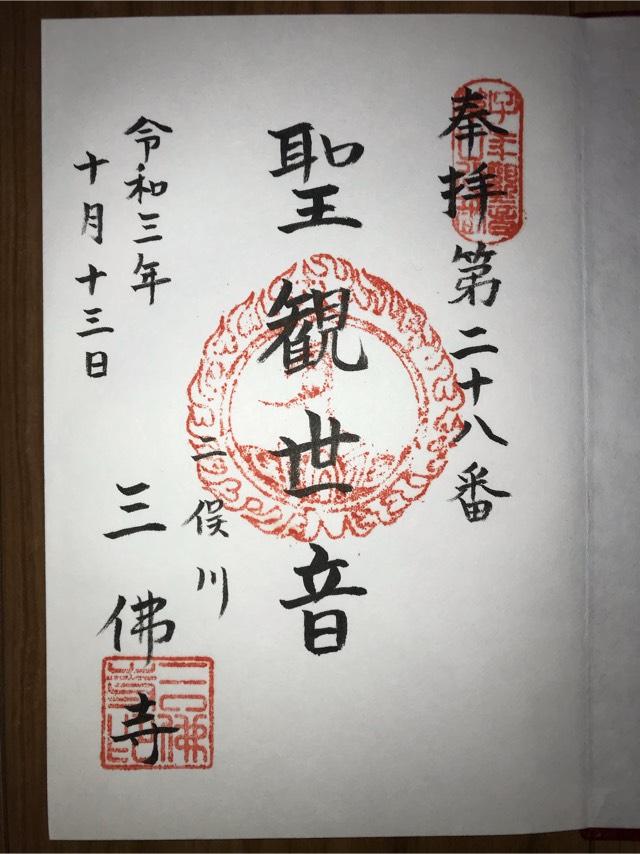 奉拝第二十八番
聖観世音
二俣川
三佛寺
令和三年
十月十三日